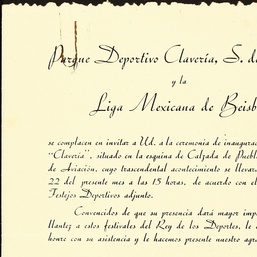 Parque Deportivo Clavería, S. de
y la
Liga Mexicana de Beisb
se complacen en invitar a Ud. a la ceremonia de inaugurac
"Clavería", situado en la esquina de Calzada de Puebl
de Aviación, cuyo trascendental acontecimiento se llevar
22 del presente mes a las 15 horas, de acuerdo con el
Festejos Deportivos adjunto.
Convencidos de que su presencia dará mayor imp
llantez a estos festivales del Rey de los Deportes, le
honre con su asistencia y le hacemos presente nuestro agra